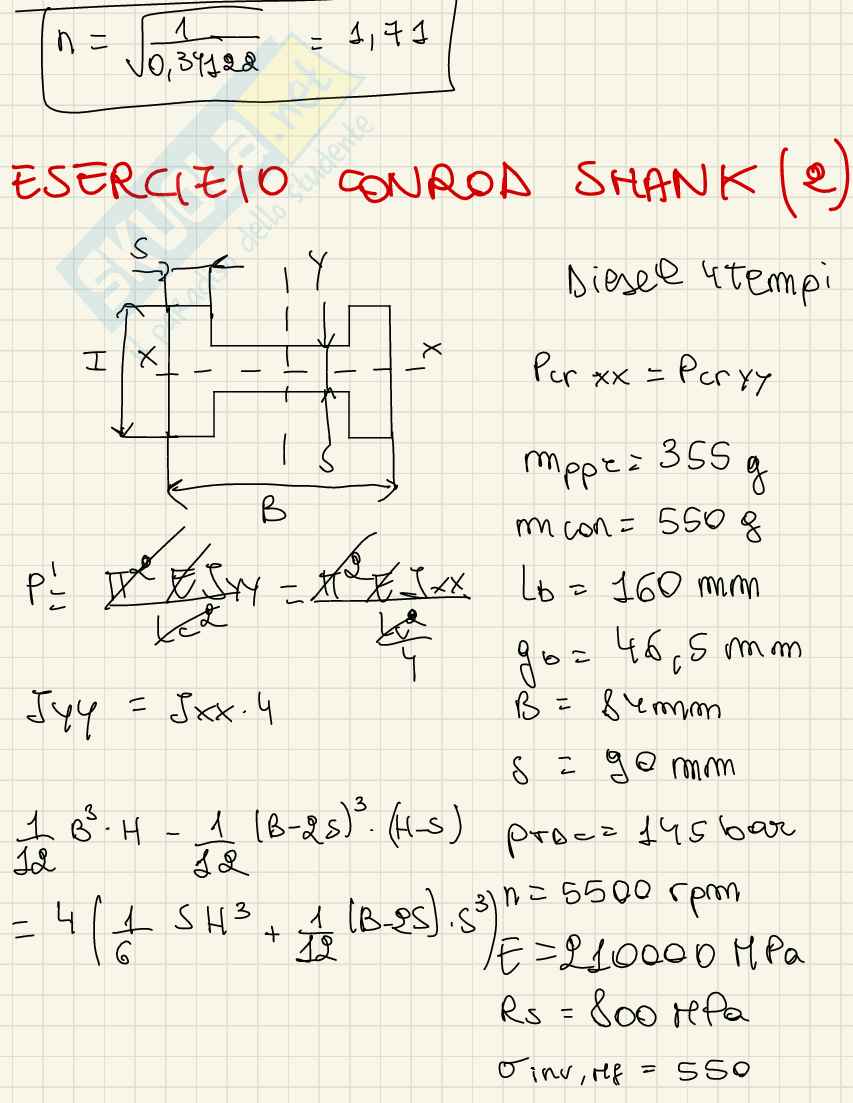 n = √(1/0,34122) = 1,71
SKUOLA.net
il paradiso dello studente
ESERCIZIO CONROD SHANK (2)
S
Y
I
X
X
S
B
Diesel 4tempi
Pcr xx = Pcr yy
m con = 550 g
Lb = 160 mm
gb = 46,5 mm
B = 84mm
s = 90 mm
PTDC = 145 bar
n = 5500 rpm
E = 210000 MPa
Rs = 800 MPa
σ inv, = 550
P' = π² E Jyy / lc² = π² E Jxx / (lc²/4)
Jyy = Jxx · 4
1/12 B³ · H - 1/12 (B-2S)³ · (H-S)
= 4 (1/6 SH³ + 1/12 (B-2S) · S³)